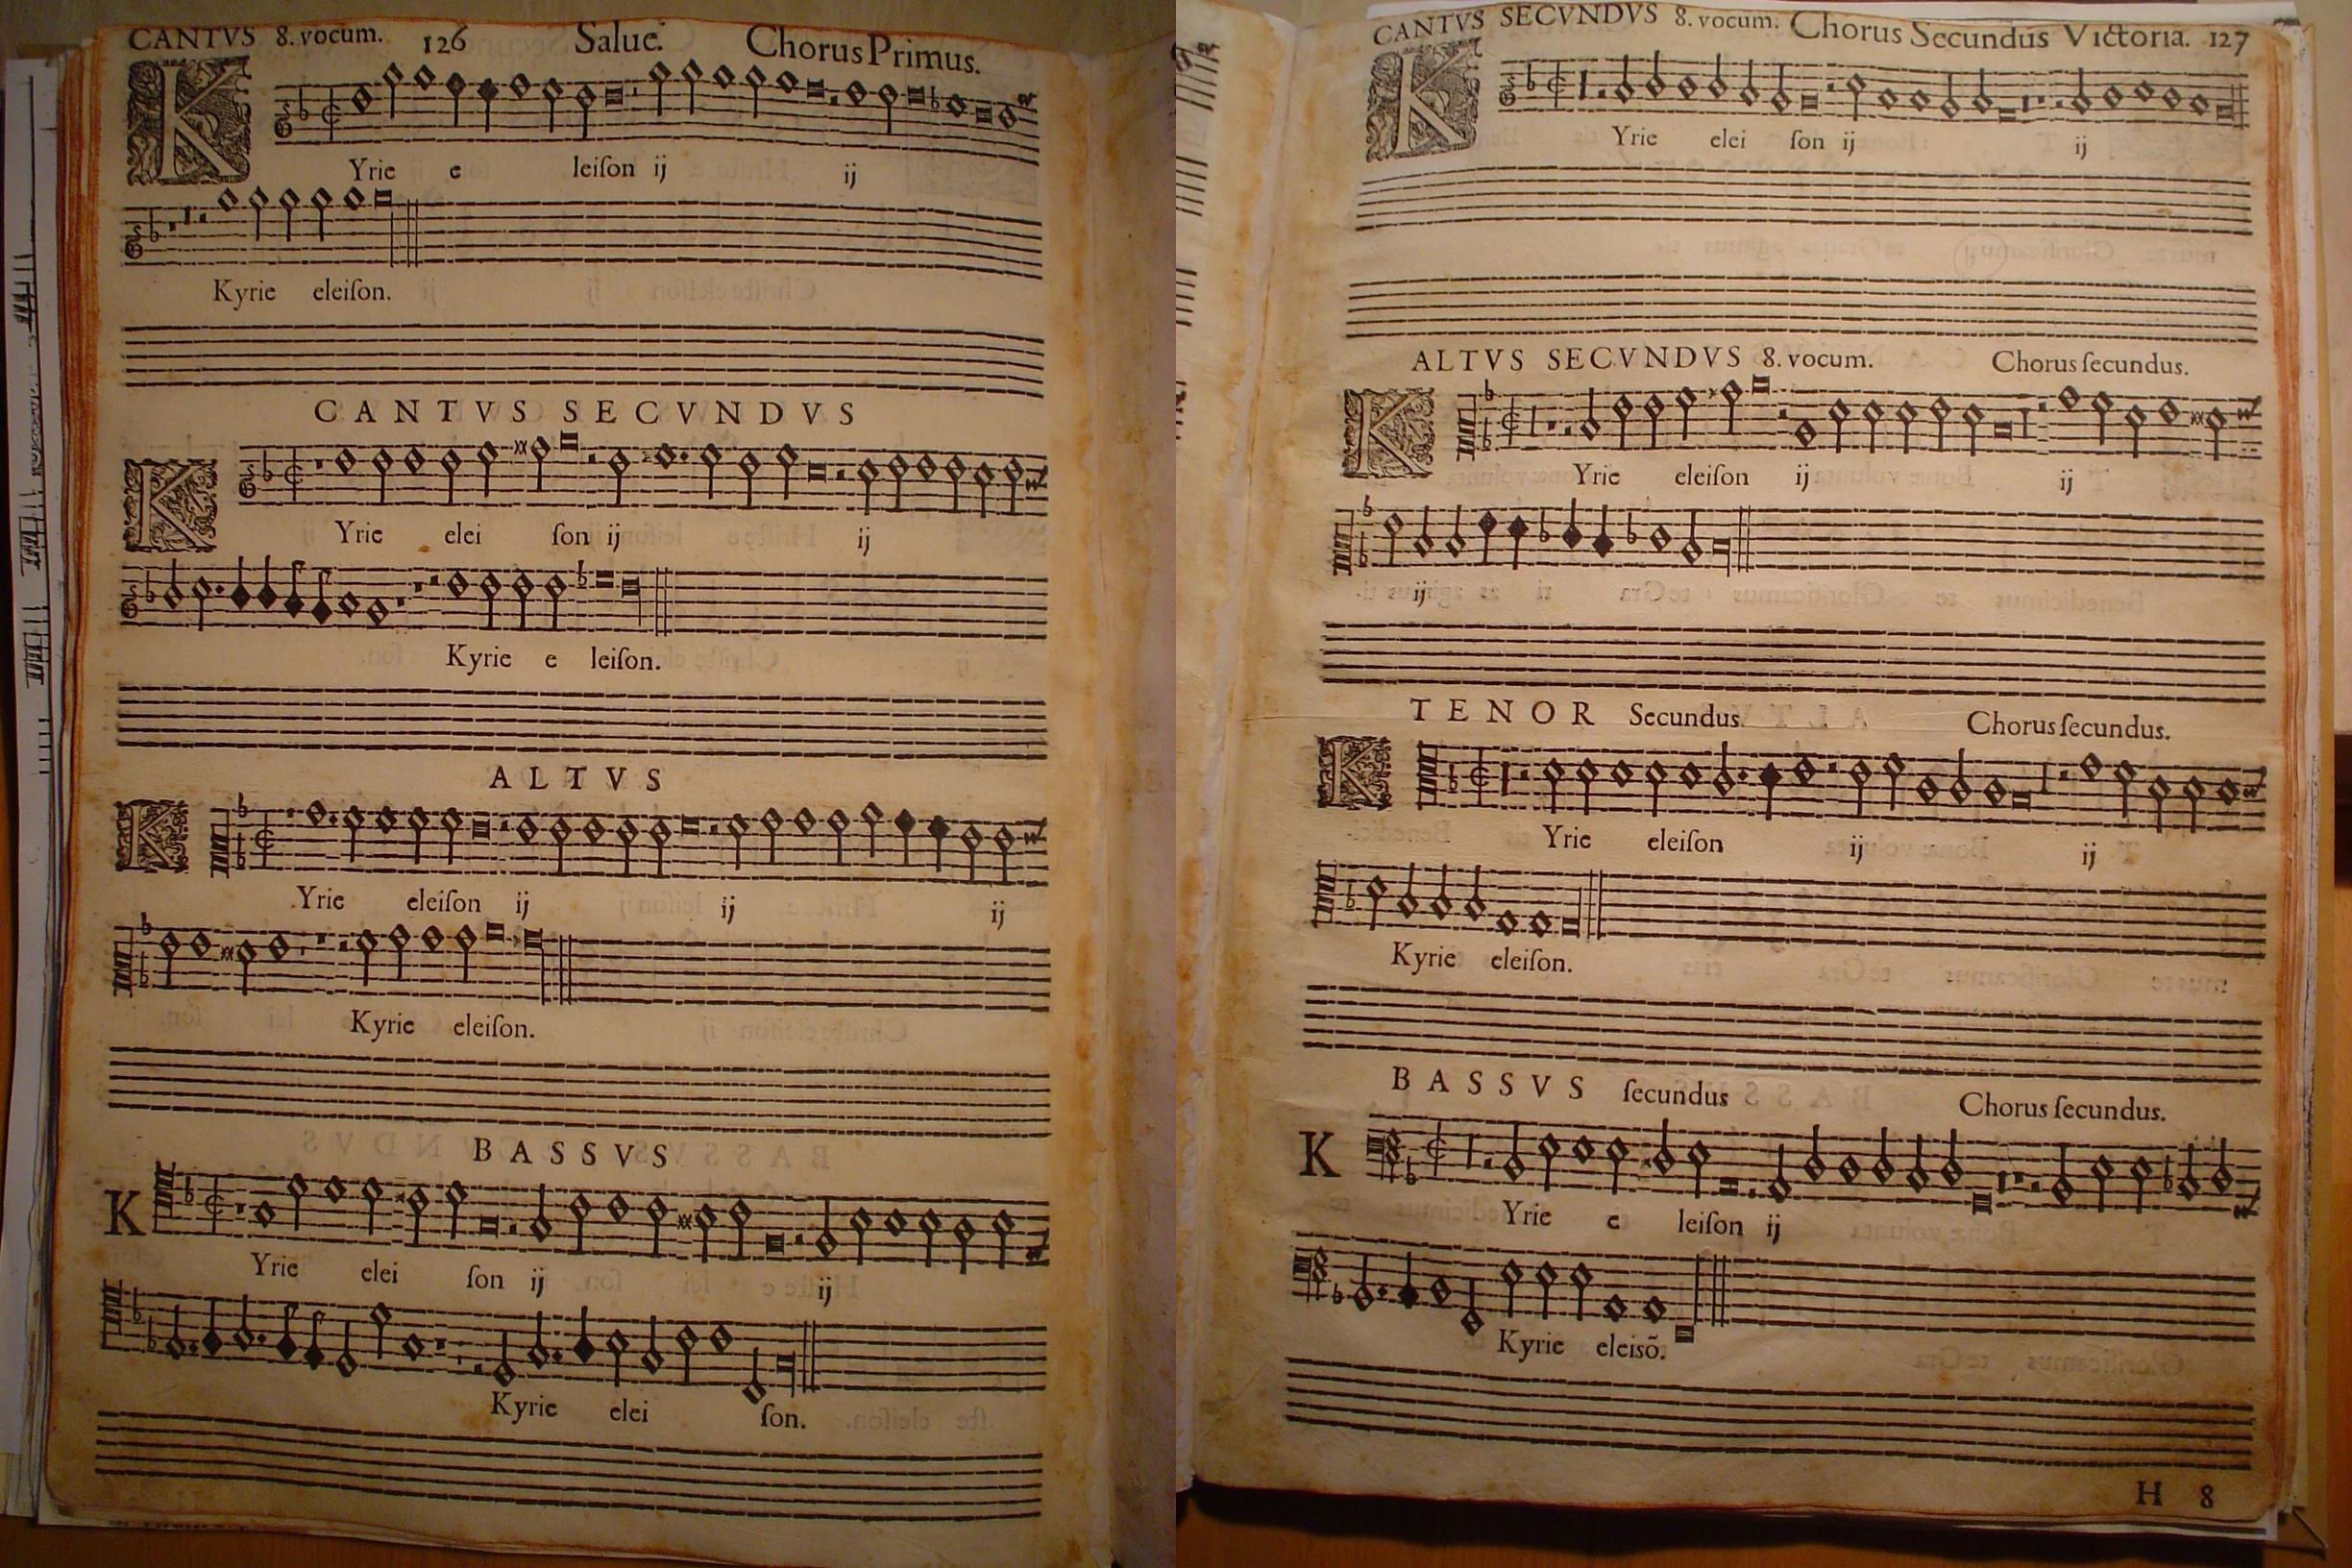 CANTVS 8. vocum. 126 Salue. Chorus Primus.
K Yrie e leiſon ij ij
Kyrie eleiſon.
CANTVS SECVNDVS
K Yrie elei ſon ij ij
Kyrie e leiſon.
ALTVS
K Yrie eleiſon ij ij ij
Kyrie eleiſon.
BASSVS
K Yrie elei ſon ij ij
Kyrie elei ſon.
CANTVS SECVNDVS 8. vocum. Chorus Secundus Victoria. 127
K Yrie elei ſon ij ij
ALTVS SECVNDVS 8. vocum. Chorus ſecundus.
K Yrie eleiſon ij ij
ij
TENOR Secundus. Chorus ſecundus.
K Yrie eleiſon ij ij
Kyrie eleiſon.
BASSVS ſecundus Chorus ſecundus.
K Yrie e leiſon ij
Kyrie eleisõ.
H 8